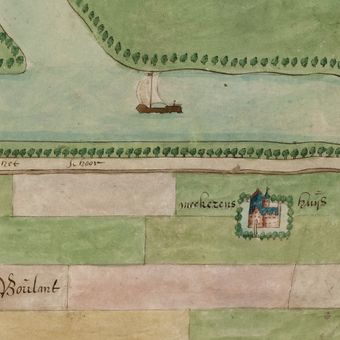 het schoor
meekerens huÿs
Boulant